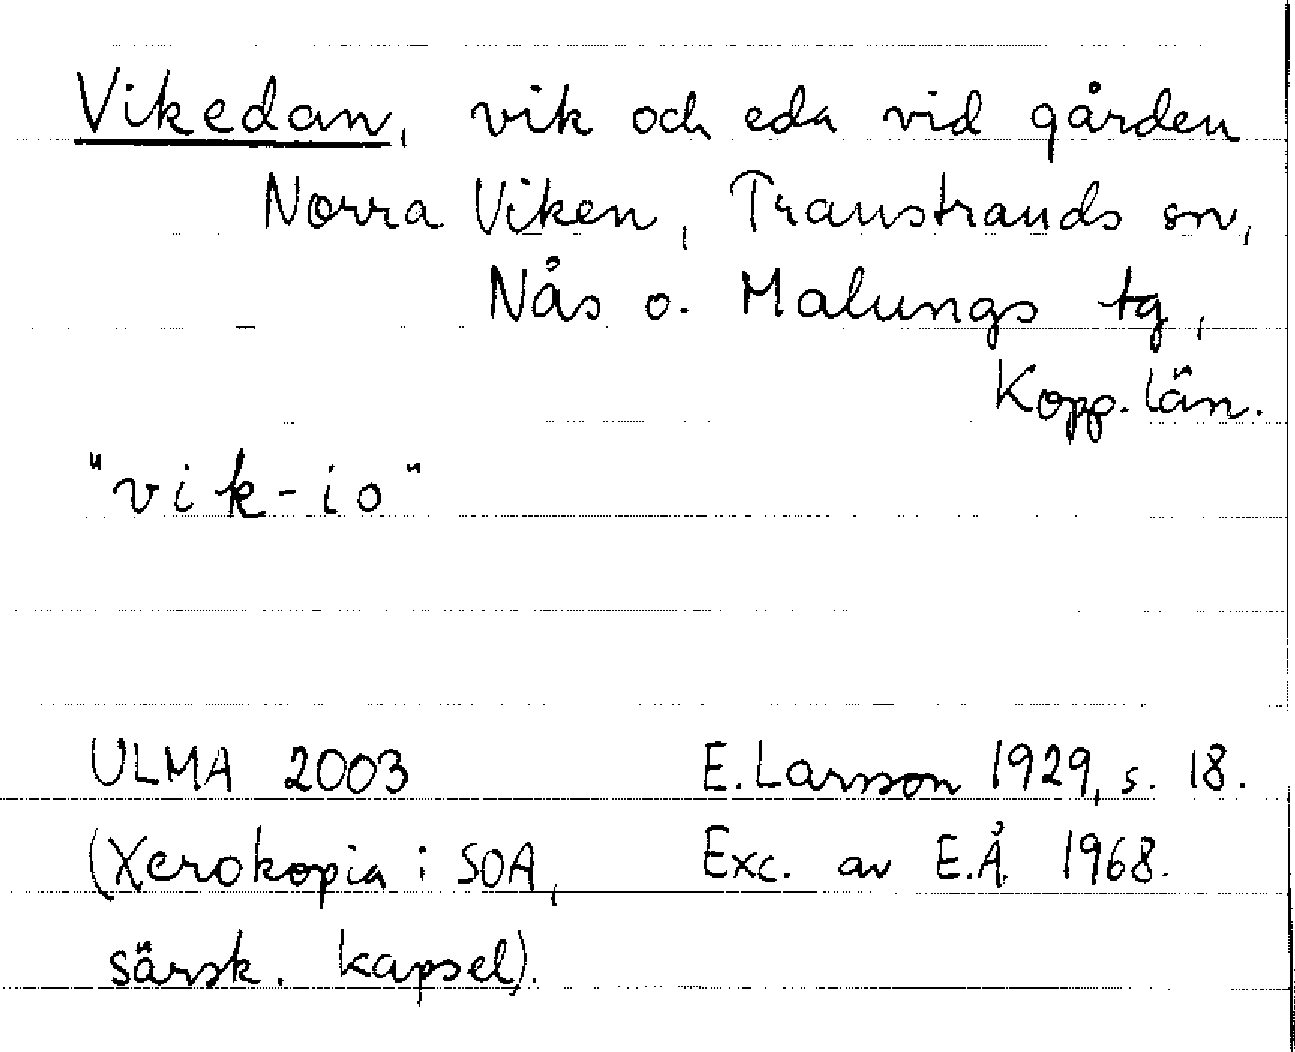 Vikedan, vik och eda vid gården
Norra Viken, Transtrands sn,
Nås o. Malungs tg,
Kopp. län.
"vik-io"
ULMA 2003 E. Larsson 1929, s. 18.
(Xerokopia i SOA, Exc. av E.Å. 1968.
särsk. kapsel).